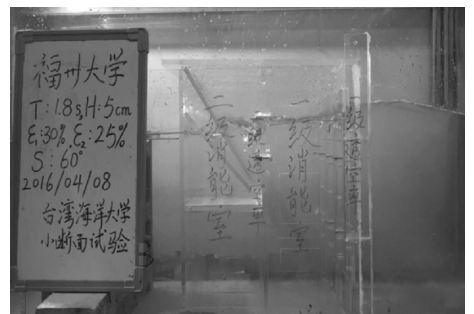 福州大学
T:1.8s,H:5cm
ε₁:30% ε₂:25%
S:60°
2016/04/08
台湾海洋大学
小断面试验
二级消能室
一级消能室